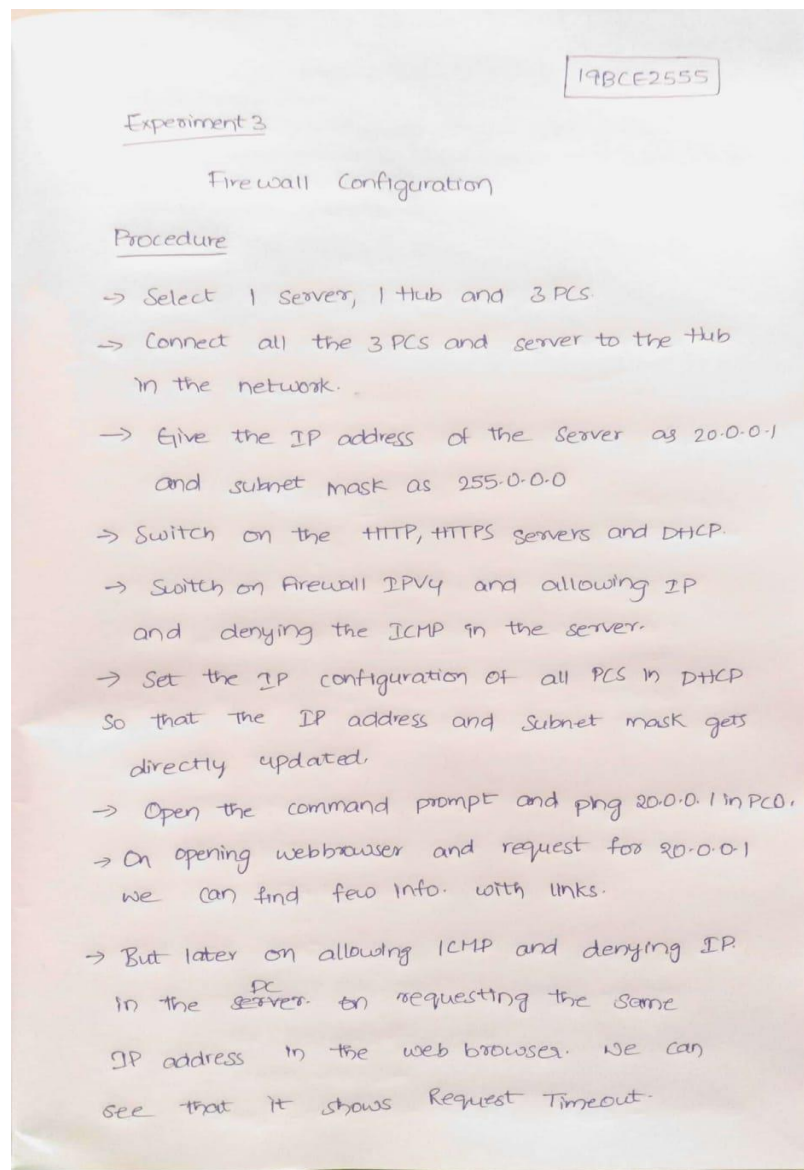 19BCE2555
Experiment 3
Firewall Configuration
Procedure
→ Select 1 Server, 1 Hub and 3 PCS.
→ Connect all the 3 PCS and server to the Hub
in the network.
→ Give the IP address of the Server as 20.0.0.1
and subnet mask as 255.0.0.0
→ Switch on the HTTP, HTTPS servers and DHCP.
→ Switch on firewall IPV4 and allowing IP
and denying the ICMP in the server.
→ Set the IP configuration of all PCS in DHCP
So that the IP address and Subnet mask gets
directly updated.
→ Open the command prompt and ping 20.0.0.1 in PC0.
→ On opening webbrowser and request for 20.0.0.1
we can find few info. with links.
→ But later on allowing ICMP and denying IP.
PC
in the server. on requesting the same
IP address in the web browser. We can
see that it shows Request Timeout.